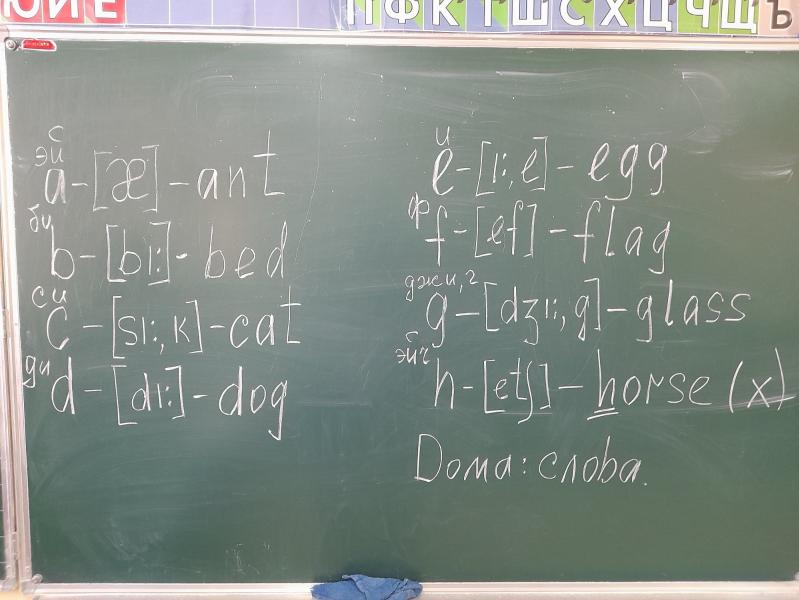 ЮЙЕ
ПФКТШСХЦЧЩЪ
с
эй
a - [æ] - ant
би
b - [bı:] - bed
си
c - [sı:, к] - cat
ди
d - [dı:] - dog
и
e - [ı:, e] - egg
ф
f - [ef] - flag
джи, г
g - [dʒı:, g] - glass
эйч
h - [etʃ] - horse (х)
Дома: слова.